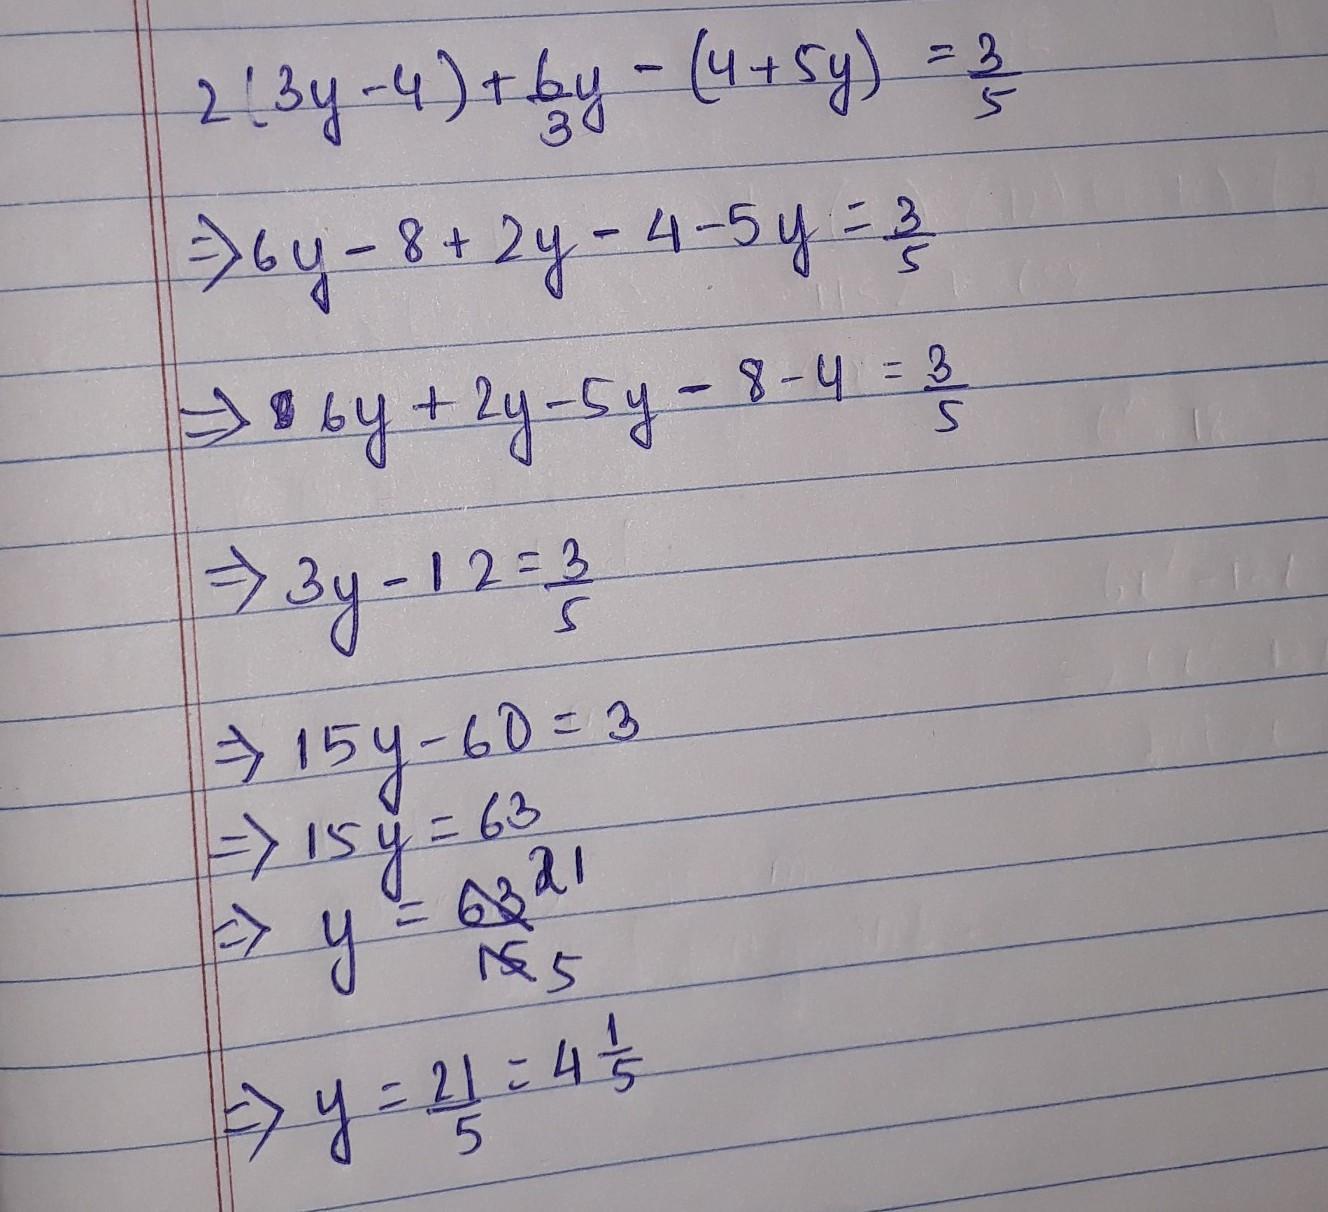 2(3y-4)+6/3y-(4+5y) = 3/5
⇒6y-8+2y-4-5y=3/5
⇒ 6y+2y-5y-8-4=3/5
⇒3y-12=3/5
⇒15y-60=3
⇒15y=63
⇒ y=63/15 21/5
⇒ y=21/5=4 1/5